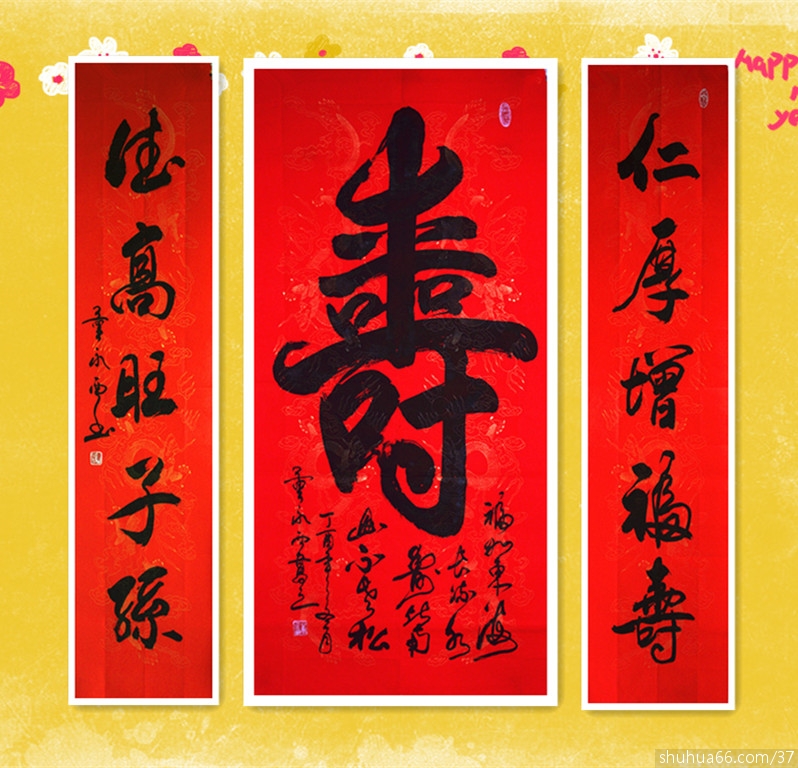 仁厚增福壽
壽
福如東海
長流水
壽比南
山不老松
德高旺子孫
Happ
shuhua66.com/37